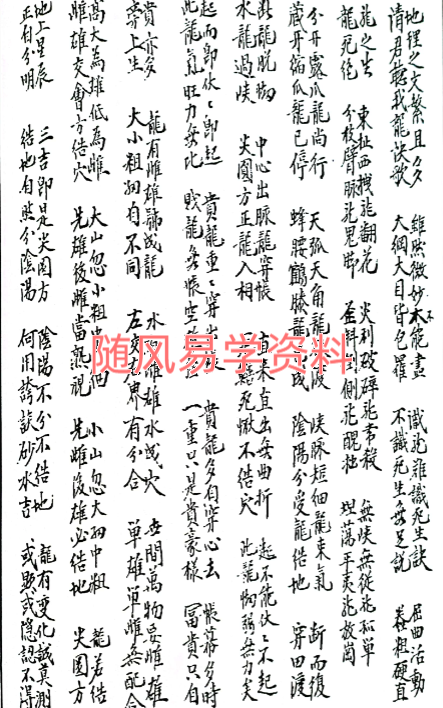 地理之文繁且多 雖然微妙不能盡 識龍雖識死生訣 屈曲活動
請君聽我龍訣歌 大綱大目皆包羅 不識死生無足說 蠢粗硬直
龍之生 東扯西拽龍翻花 尖利破碎龍帶殺 無峽無從龍孤單
龍死絕 分枝劈脉龍鬼刼 歪斜倒側龍醜拙 坦蕩平夷龍放崗
分牙露爪龍尚行 天孤天角龍 渡 峡脉短細龍束氣 斷而復
藏牙縮爪龍已停 蜂腰鶴膝龍 成 陰陽分受龍結地 穿田渡
斷龍脫 中心出脈龍穿帳 直來直出無曲折 起不能伏伏不起
水龍過峡 尖圓方正龍入相 死鰍不結穴 此龍 弱無力矣
起而即伏伏即起 貴龍重重穿出 貴龍多自穿心去 帳幕多時
此龍氣旺力無比 賤龍無帳空 一重只是貴豪樣 富貴只自
貴亦多 龍有雌雄號成龍 水 雌雄水成穴 世間萬物要雌雄
旁上生 大小祖 自不同 左交 界有分合 單雄單雌無配合
高大為雄低為雌 大山忽小祖中細 小山忽大 中粗 龍若結
雌雄交會方結穴 先雄後雌當熟視 先雌後雄必結地 尖圓方
地上星辰 三吉即是尖圓方 陰陽不分不結地 龍有變化誠莫測
正自分明 結地自然分陰陽 何用誇談砂水吉 或顯或隱認不得
随风易学资料